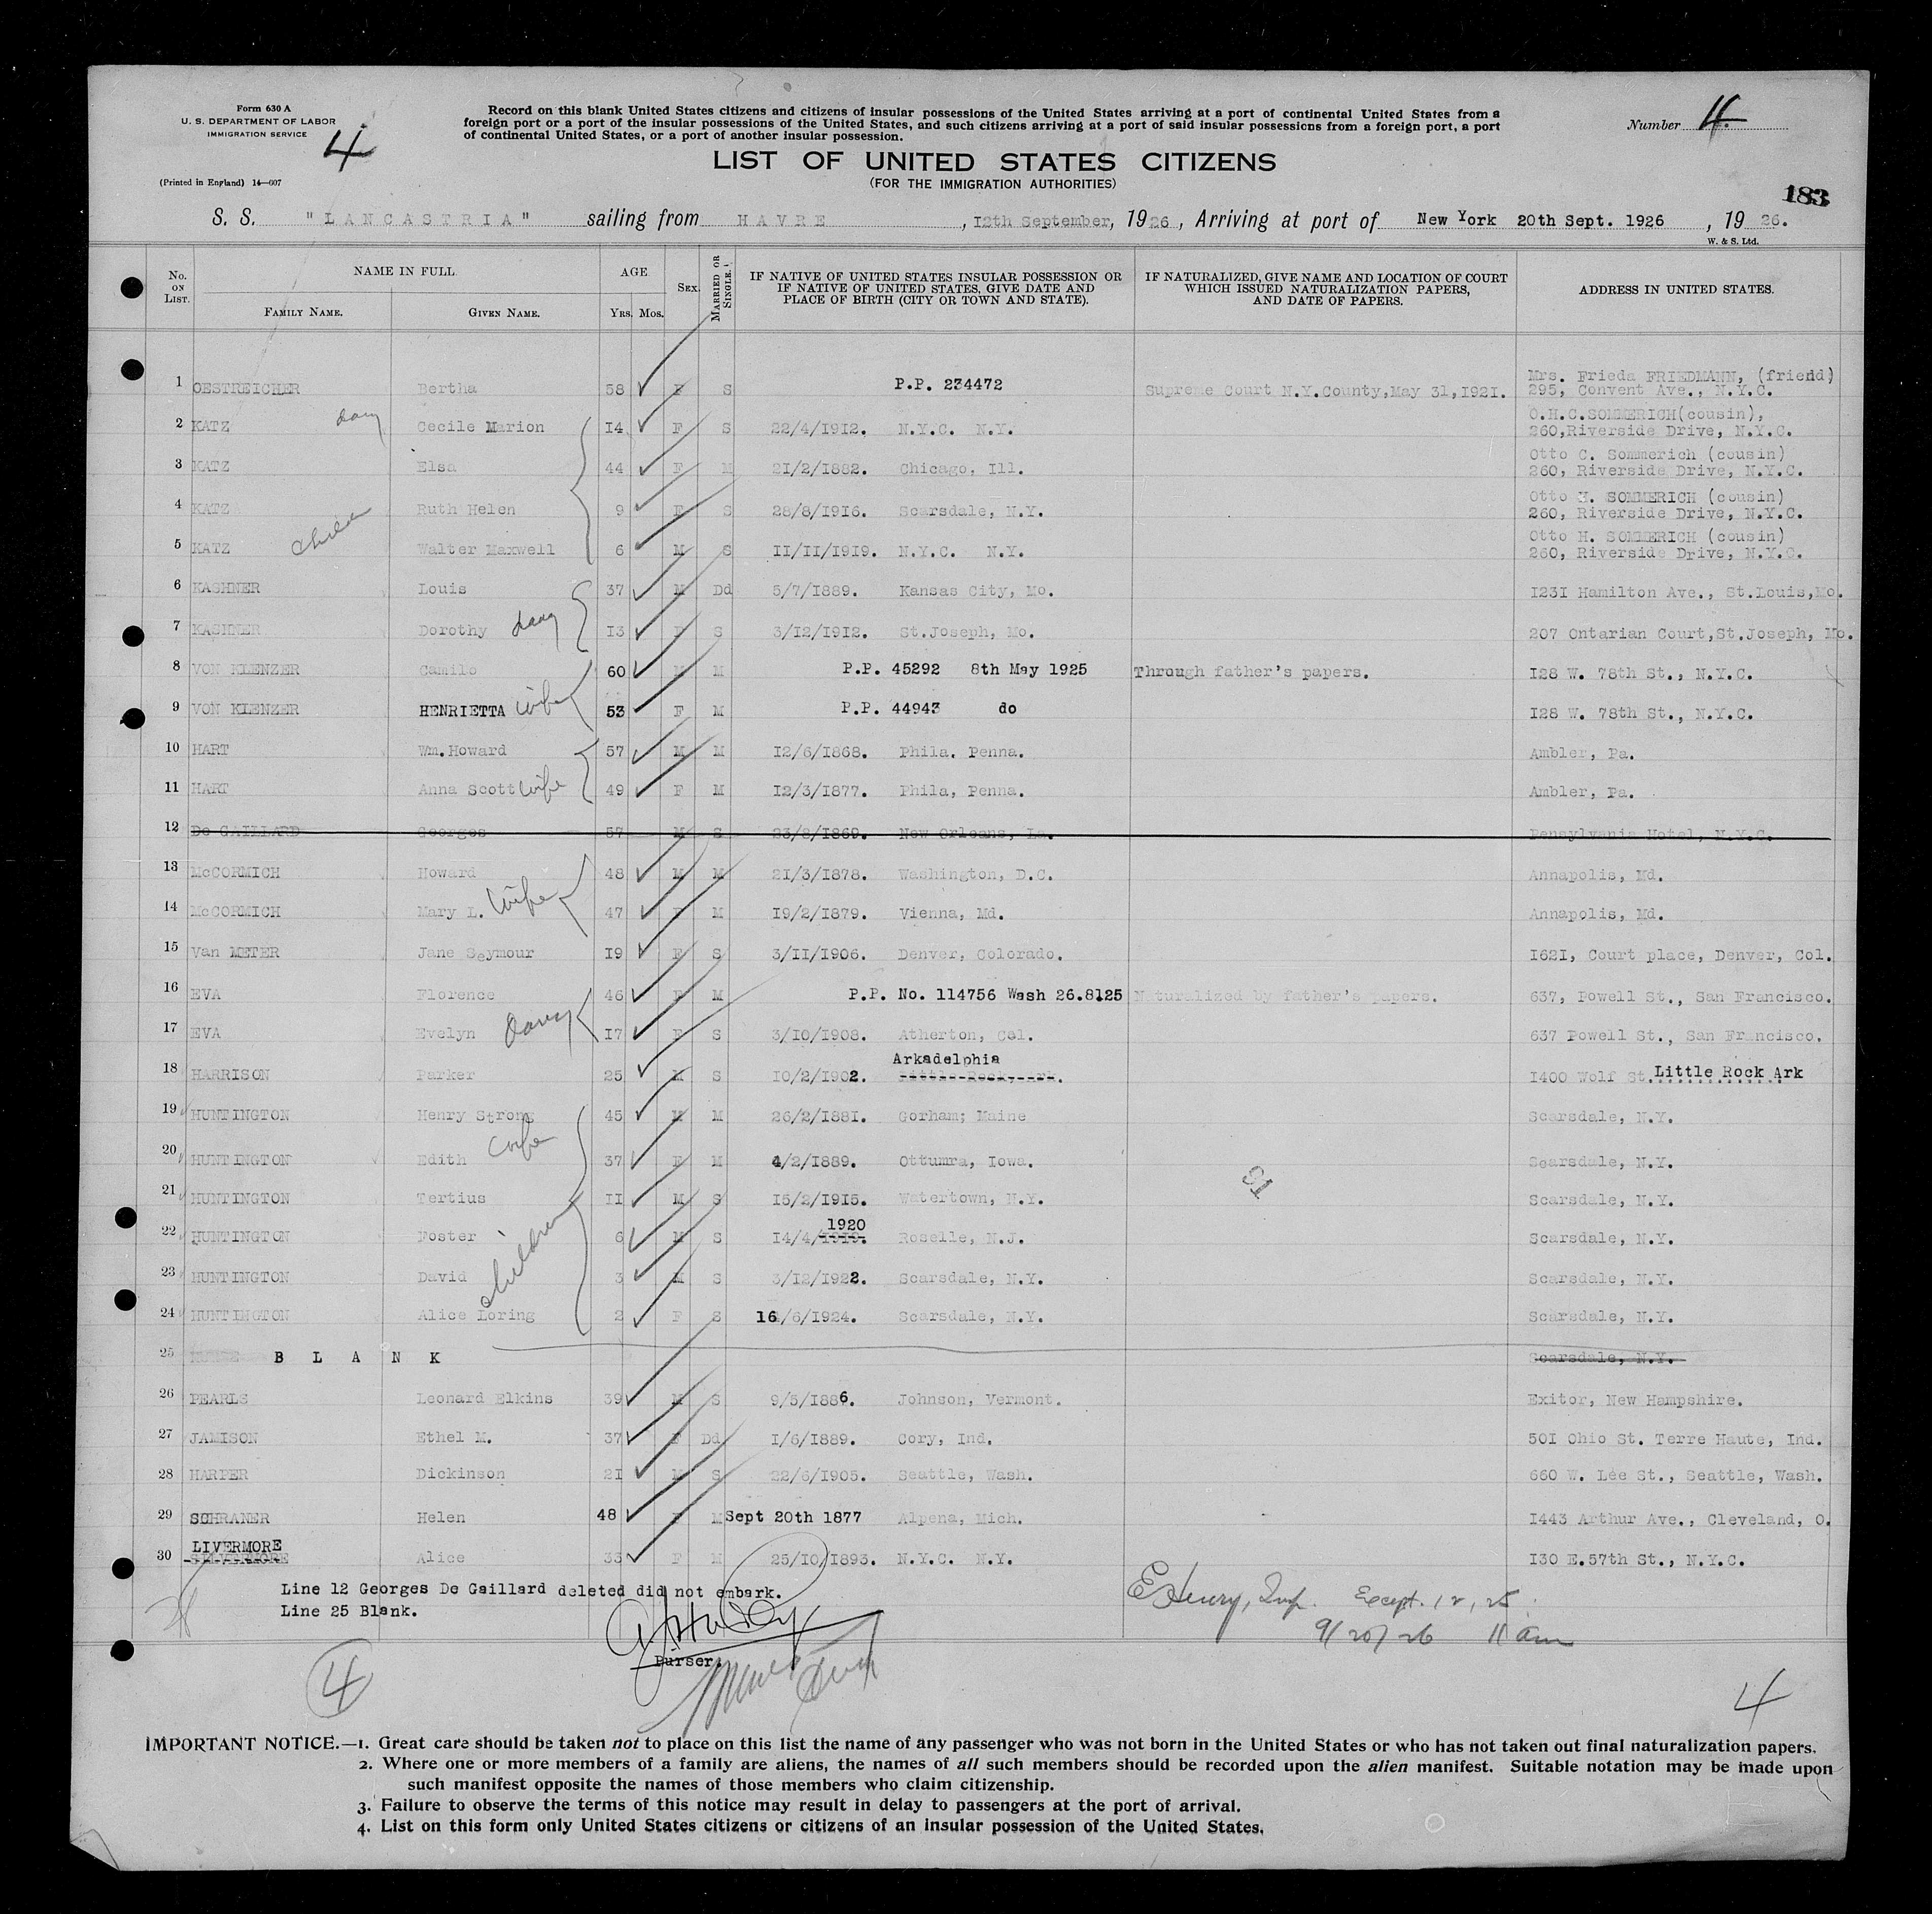 Form 630 A
U. S. DEPARTMENT OF LABOR
IMMIGRATION SERVICE
4
(Printed in England) 14—607
Record on this blank United States citizens and citizens of insular possessions of the United States arriving at a port of continental United States from a
foreign port or a port of the insular possessions of the United States, and such citizens arriving at a port of said insular possessions from a foreign port, a port
of continental United States, or a port of another insular possession.
Number 4.
LIST OF UNITED STATES CITIZENS
(FOR THE IMMIGRATION AUTHORITIES)
183
S. S. "LANCASTRIA" sailing from HAVRE, 12th September, 1926, Arriving at port of New York 20th Sept. 1926, 19 26.
W. & S. Ltd.
No. ON LIST. NAME IN FULL FAMILY NAME. GIVEN NAME. AGE YRS. MOS. SEX. MARRIED OR SINGLE. IF NATIVE OF UNITED STATES INSULAR POSSESSION OR IF NATIVE OF UNITED STATES, GIVE DATE AND PLACE OF BIRTH (CITY OR TOWN AND STATE). IF NATURALIZED, GIVE NAME AND LOCATION OF COURT WHICH ISSUED NATURALIZATION PAPERS, AND DATE OF PAPERS. ADDRESS IN UNITED STATES.
1 OESTREICHER Bertha 58 F S P.P. 234472 Supreme Court N.Y.County,May 31,1921. Mrs. Frieda FRIEDMANN, (friend) 295, Convent Ave., N.Y.C.
2 KATZ daug Cecile Marion 14 F S 22/4/1912. N.Y.C. N.Y. O.H.C.SOMMERICH(cousin), 260,Riverside Drive, N.Y.C.
3 KATZ Elsa 44 F M 21/2/1882. Chicago, Ill. Otto C. Sommerich (cousin) 260, Riverside Drive, N.Y.C.
4 KATZ Ruth Helen 9 F S 28/8/1916. Scarsdale, N.Y. Otto H. SOMMERICH (cousin) 260, Riverside Drive, N.Y.C.
5 KATZ Walter Maxwell 6 M S 11/11/1919. N.Y.C. N.Y. Otto H. SOMMERICH (cousin) 260, Riverside Drive, N.Y.C.
6 KASHNER Louis 37 M Dd 5/7/1889. Kansas City, Mo. 1231 Hamilton Ave., St.Louis,Mo.
7 KASHNER Dorothy daug 13 F S 3/12/1912. St.Joseph, Mo. 207 Ontarian Court,St.Joseph, Mo.
8 VON KLENZER Camilo 60 M M P.P. 45292 8th May 1925 Through father's papers. 128 W. 78th St., N.Y.C.
9 VON KLENZER HENRIETTA wife 53 F M P.P. 44943 do 128 W. 78th St., N.Y.C.
10 HART Wm.Howard 57 M M 12/6/1868. Phila. Penna. Ambler, Pa.
11 HART Anna Scott wife 49 F M 12/3/1877. Phila, Penna. Ambler, Pa.
12 De GAILLARD Georges 57 M S 23/8/1869. New Orleans, La. Pensylvania Hotel, N.Y.C.
13 McCORMICH Howard 48 M M 21/3/1878. Washington, D.C. Annapolis, Md.
14 McCORMICH Mary L. wife 47 F M 19/2/1879. Vienna, Md. Annapolis, Md.
15 Van METER Jane Seymour 19 F S 3/11/1906. Denver, Colorado. 1621, Court place, Denver, Col.
16 EVA Florence 46 F M P.P. No. 114756 Wash 26.8125 Naturalized by father's papers. 637, Powell St., San Francisco.
17 EVA Evelyn daug 17 F S 3/10/1908. Atherton, Cal. 637 Powell St., San Francisco.
18 HARRISON Parker 25 M S 10/2/1902. Arkadelphia Little Rock, Ark. 1400 Wolf St. Little Rock Ark
19 HUNTINGTON Henry Strong 45 M M 26/2/1881. Gorham; Maine Scarsdale, N.Y.
20 HUNTINGTON Edith wife 37 F M 4/2/1889. Ottumra, Iowa. Scarsdale, N.Y.
21 HUNTINGTON Tertius 11 M S 15/2/1915. Watertown, N.Y. Scarsdale, N.Y.
22 HUNTINGTON Foster children 6 M S 14/4/1919. 1920 Roselle, N.J. Scarsdale, N.Y.
23 HUNTINGTON David 3 M S 3/12/1922. Scarsdale, N.Y. Scarsdale, N.Y.
24 HUNTINGTON Alice Loring 2 F S 16/6/1924. Scarsdale, N.Y. Scarsdale, N.Y.
25 BLANK Scarsdale, N.Y.
26 PEARLS Leonard Elkins 39 M S 9/5/1886. Johnson, Vermont. Exitor, New Hampshire.
27 JAMISON Ethel M. 37 F Dd 1/6/1889. Cory, Ind. 501 Ohio St. Terre Haute, Ind.
28 HARPER Dickinson 21 M S 22/6/1905. Seattle, Wash. 660 W. Lee St., Seattle, Wash.
29 SCHRANER Helen 48 F M Sept 20th 1877 Alpena, Mich. 1443 Arthur Ave., Cleveland, O.
30 LIVERMORE Alice 33 F M 25/10/1893. N.Y.C. N.Y. 130 E.57th St., N.Y.C.
13
Line 12 Georges De Gaillard deleted did not embark.
Line 25 Blank.
Purser.
E Henry, Insp. Except. 12, 25.
9/20/26 11 am
4
4
IMPORTANT NOTICE.—1. Great care should be taken not to place on this list the name of any passenger who was not born in the United States or who has not taken out final naturalization papers.
2. Where one or more members of a family are aliens, the names of all such members should be recorded upon the alien manifest. Suitable notation may be made upon
such manifest opposite the names of those members who claim citizenship.
3. Failure to observe the terms of this notice may result in delay to passengers at the port of arrival.
4. List on this form only United States citizens or citizens of an insular possession of the United States.